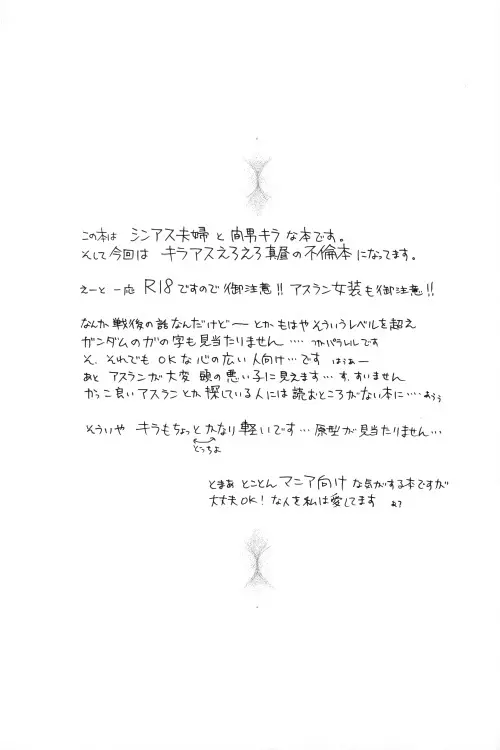 この本は シンアス夫婦 と 間男キラ な本です。
そして今回は キラアスえろえろ真昼の不倫本 になってます。
えーと 一応 R18ですので御注意!! アスラン女装も御注意!!
なんか戦後の話なんだけどー とかもはやそういうレベルを超え
ガンダムのガの字も見当たりません‥‥ つかパラレルです
そ、それでも OKな心の広い人向け…です はうあー
あと アスランが大変 頭の悪い子に見えます… す、すいません
かっこ良いアスランとか探している人には読むところがない本に‥‥ あうう
そういや キラもちょっとかなり軽いです… 原型が見当たりません…
どっちよ
とまあ とことん マニア向け な気がする本ですが
大丈夫OK! な人を私は愛してます